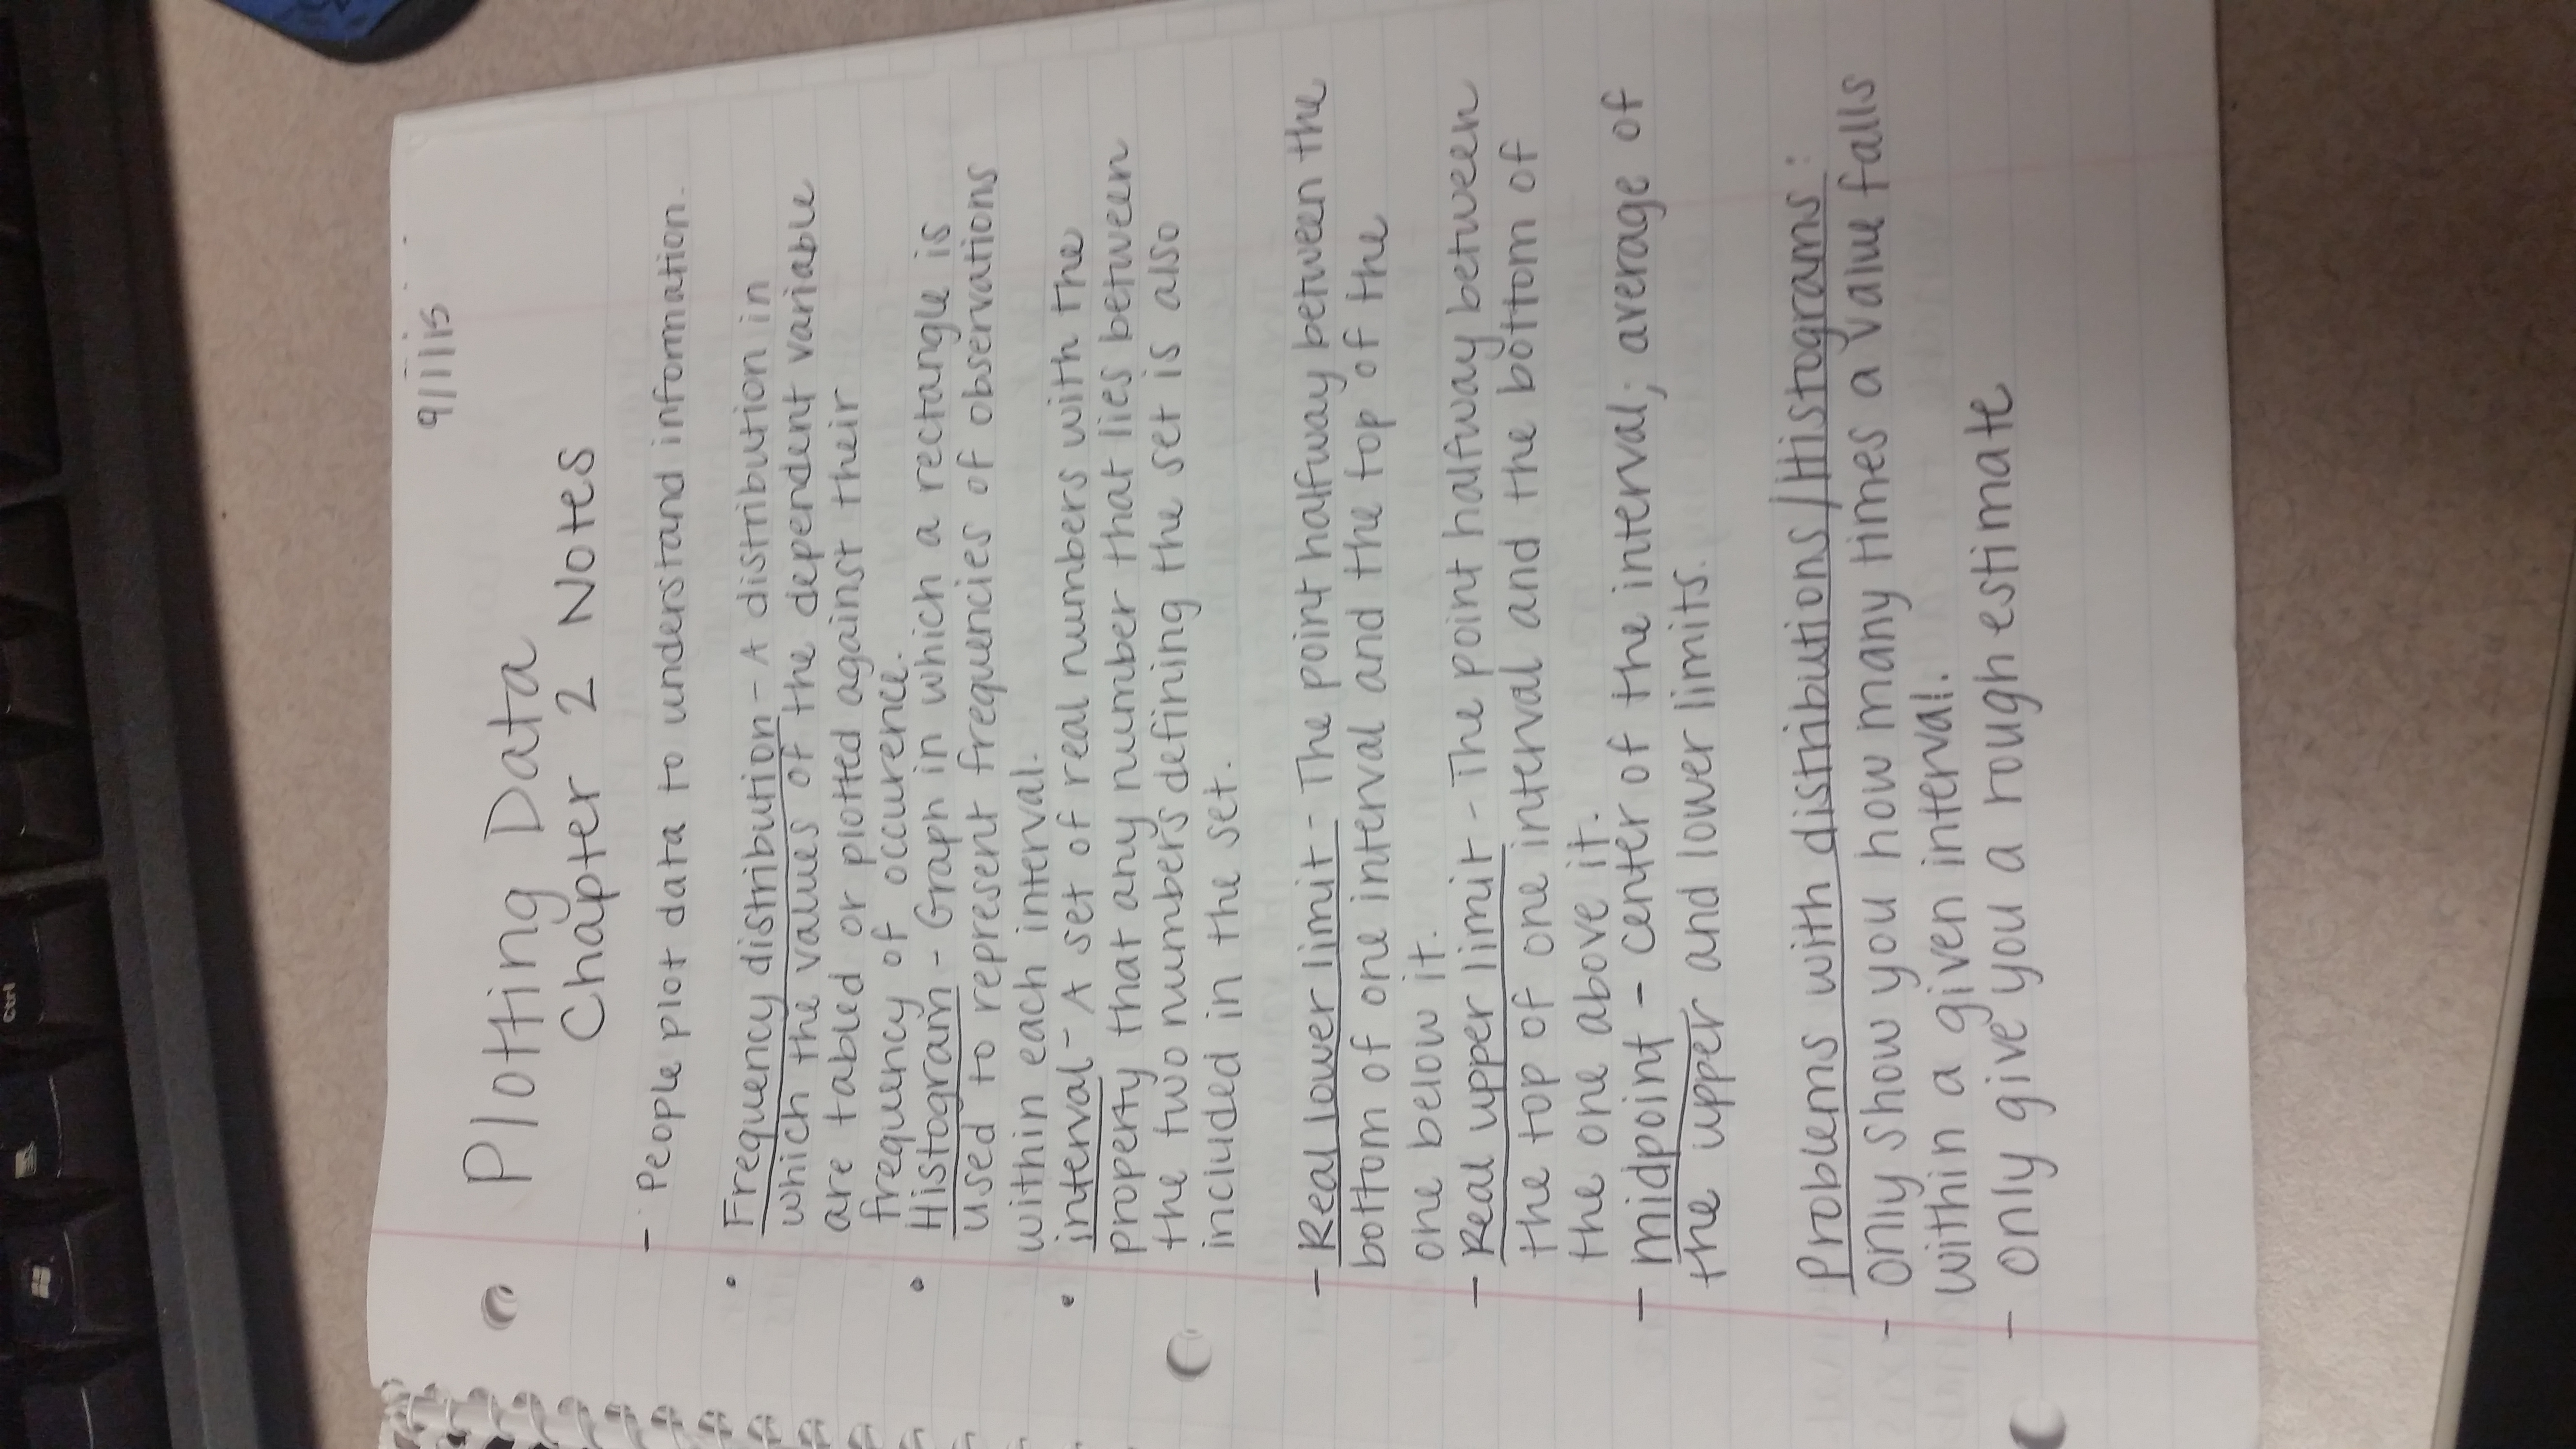 9/11/15
Plotting Data
Chapter 2 Notes
- People plot data to understand information.
• Frequency distribution - A distribution in
which the values of the dependent variable
are tabled or plotted against their
frequency of occurence.
• Histogram - Graph in which a rectangle is
used to represent frequencies of observations
within each interval.
• interval - A set of real numbers with the
property that any number that lies between
the two numbers defining the set is also
included in the set.
- Real lower limit - The point halfway between the
bottom of one interval and the top of the
one below it.
- Real upper limit - The point halfway between
the top of one interval and the bottom of
the one above it.
- midpoint - center of the interval; average of
the upper and lower limits.
Problems with distributions/Histograms:
- only show you how many times a value falls
within a given interval.
- only give you a rough estimate
Ctrl